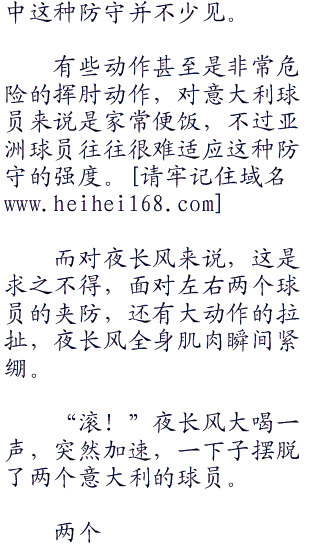 中这种防守并不少见。
有些动作甚至是非常危
险的挥肘动作，对意大利球
员来说是家常便饭，不过亚
洲球员往往很难适应这种防
守的强度。[请牢记住域名
www.heihei168.com]
而对夜长风来说，这是
求之不得，面对左右两个球
员的夹防，还有大动作的拉
扯，夜长风全身肌肉瞬间紧
绷。
“滚！”夜长风大喝一
声，突然加速，一下子摆脱
了两个意大利的球员。
两个